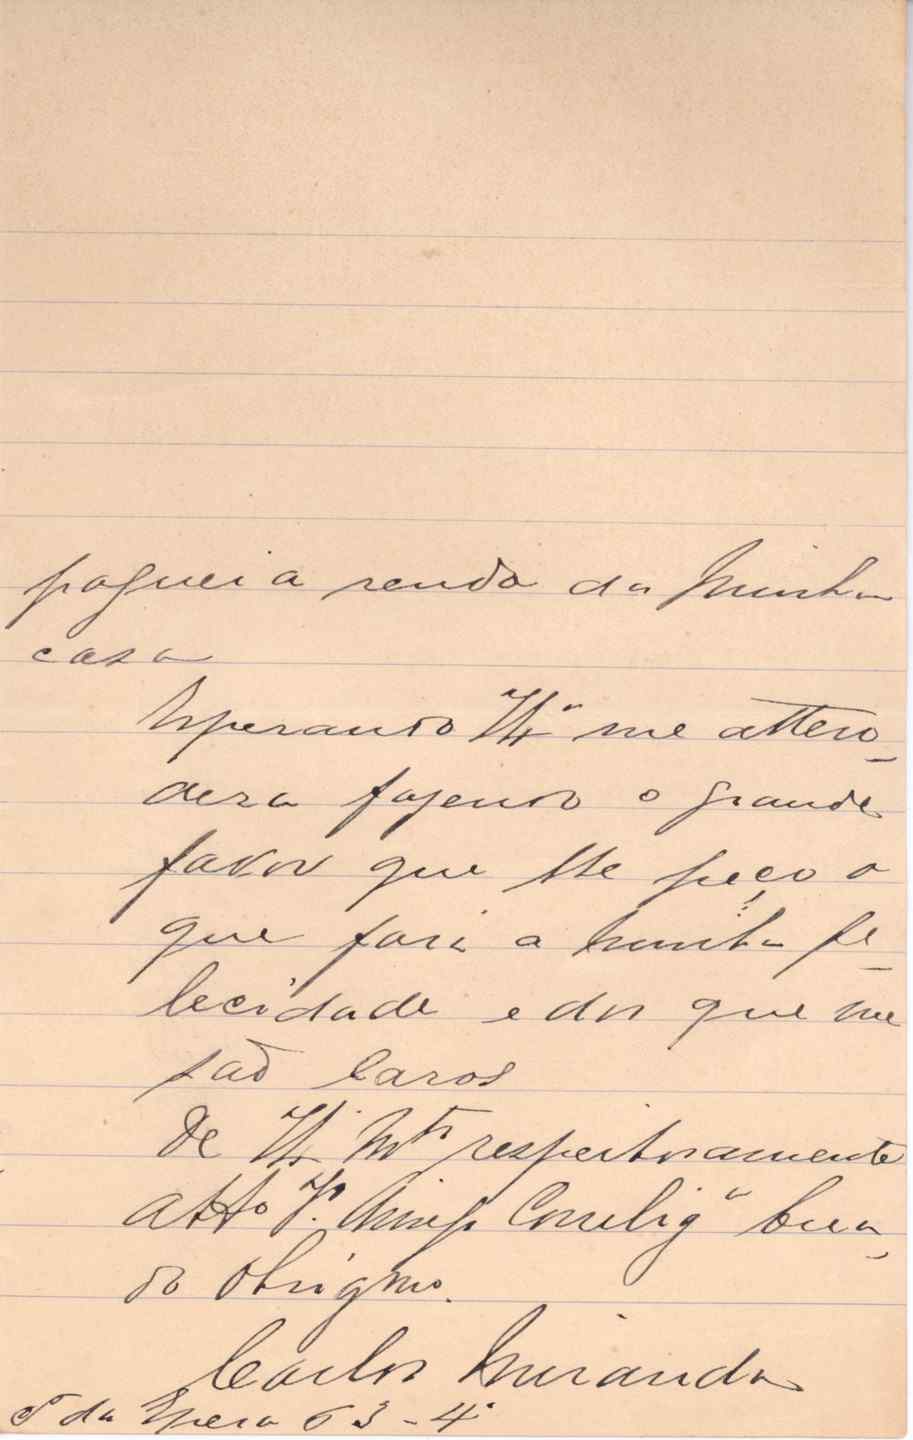 paguei a renda da minha
casa
Esperando V Ex.ª me atten-
dera fazendo o grande
favor que lhe peço o
que fará a minha fe-
lecidade e dos que me
são caros
De V Ex.ª Mto respeitosamente
Atto V.or Amigo Correlig.º Crea-
do Obrigmo.
Carlos Miranda
da Opera 63-4º